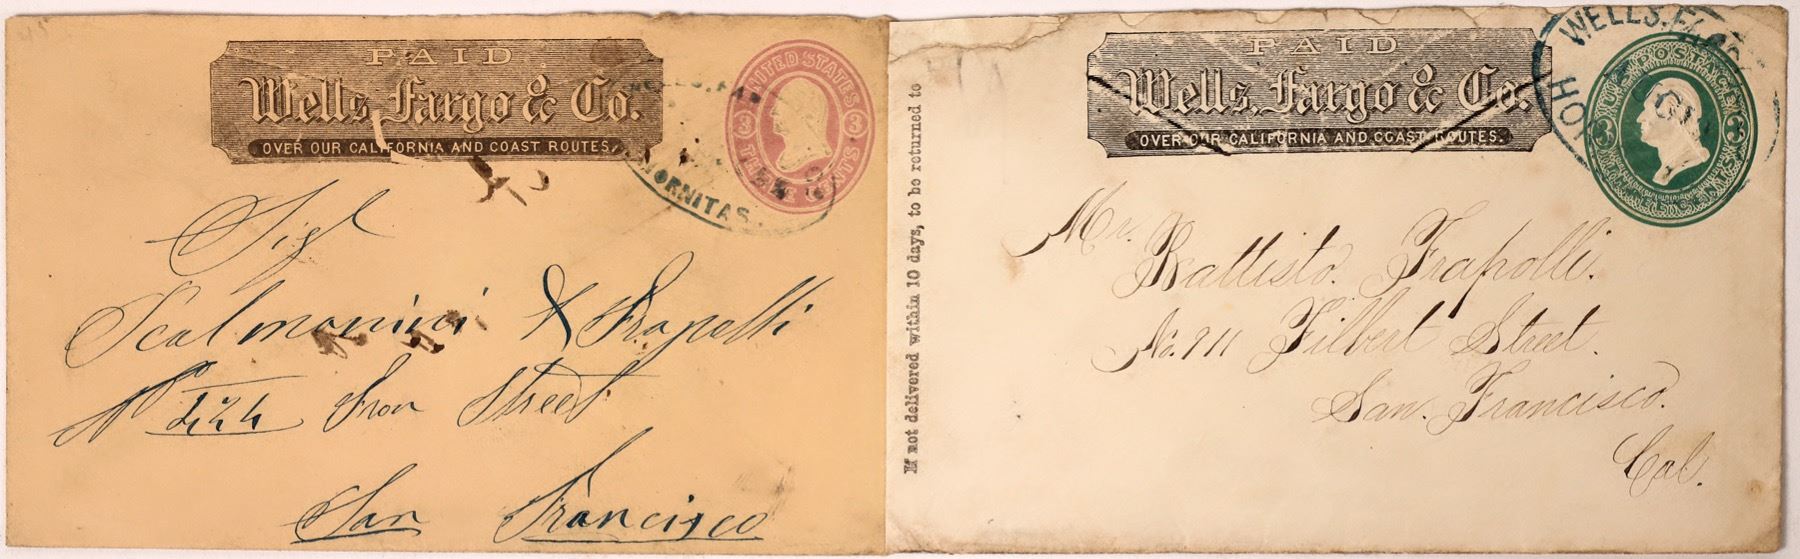 PAID
Wells, Fargo & Co.
OVER OUR CALIFORNIA AND COAST ROUTES.
UNITED STATES
THREE CENTS
3 3
WELLS, FAR
ORNITAS.
Sigl
Scalmanini & Frapolli
N° 424 Fron Street
San Francisco
If not delivered within 10 days, to be returned to
PAID
Wells, Fargo & Co.
OVER OUR CALIFORNIA AND COAST ROUTES.
WELLS, FARGO
HOR
U.S. POSTAGE
3 3
Mr. Battisto Frapolli.
No. 911 Filbert Street.
San Francisco.
Cal.